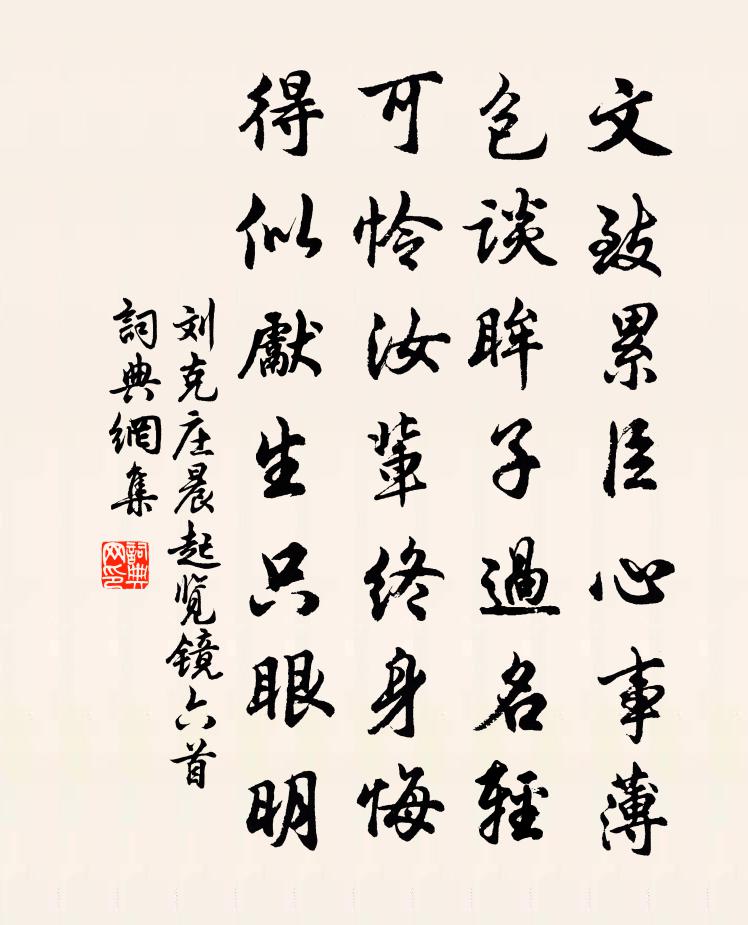 文致累臣心事薄
色談眸子過名輕
可怜汝輩終身悔
得似獻生只眼明
刘克庄晨起览镜六首
詞典網集
詞典網印